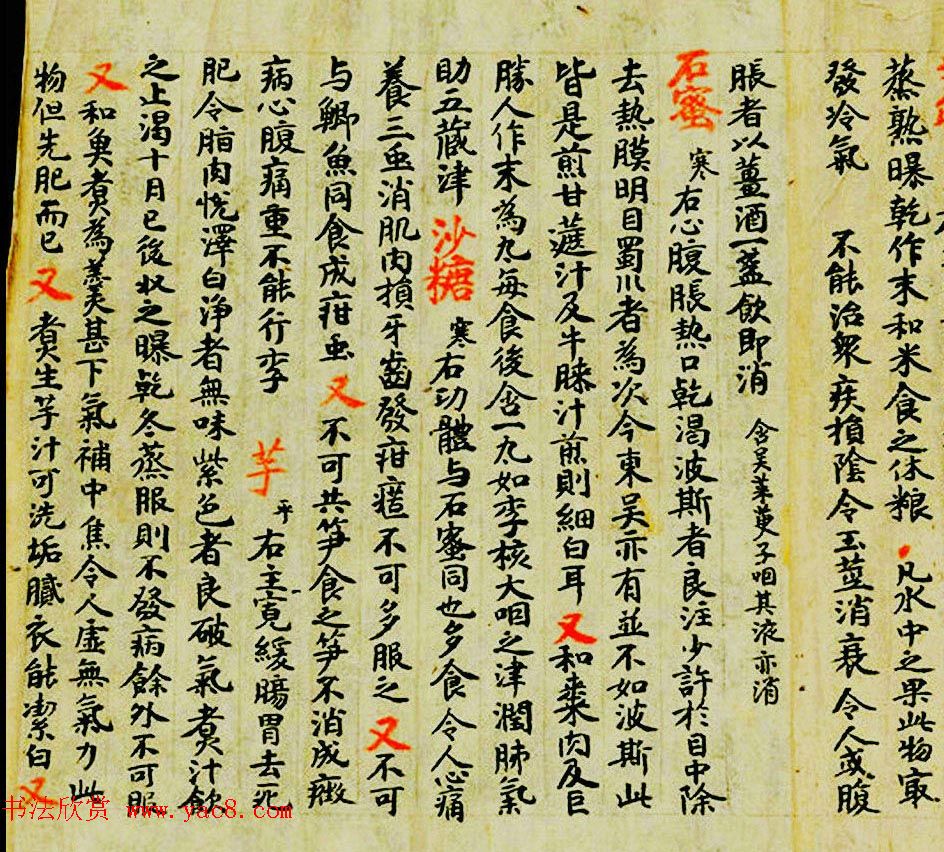 蒸熟曝乾作末和米食之休粮 凡水中之果此物寂
發冷氣 不能治衆疾損陰令玉莖消衰令人或腹
脹者以薑酒一盞飲即消 含吴茱萸子咽其液亦消
石蜜 寒 右心腹脹熱口乾渴波斯者良注少許於目中除
去熱膜明目蜀川者為次今東吴亦有並不如波斯此
皆是煎甘蔗汁及牛膝汁煎則細白耳 又 和棗肉及巨
勝人作末為丸每食後含一丸如李核大咽之津潤肺氣
助五藏津 沙糖 寒 右功體与石蜜同也多食令人心痛
養三虫消肌肉損牙齒發疳䘌不可多服之 又 不可
与鯽魚同食成疳虫 又 不可共笋食之笋不消成癥
病心腹痛重不能行李 芋 平 右主寬緩腸胃去死
肥令脂肉悦澤白净者無味紫色者良破氣煮汁飲
之止渴十月已後收之曝乾冬蒸服則不發病餘外不可服
又 和魚煮為羹甚下氣補中焦令人虚無氣力此
物但先肥而已 又 煮生芋汁可洗垢膩衣能潔白 又
书法欣赏 www.yac8.com